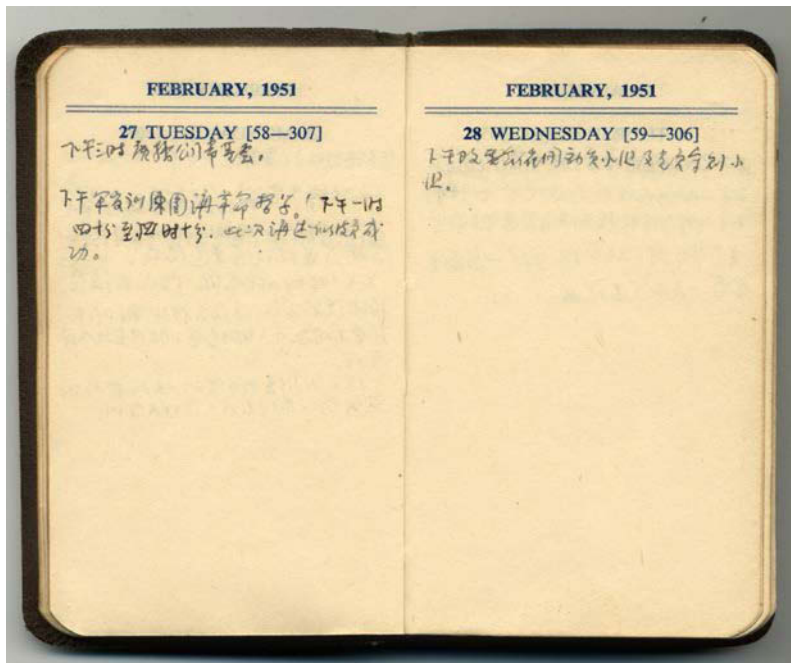 FEBRUARY, 1951
27 TUESDAY [58—307]
下午三时 公司常董会。
下午军官训练团讲革命哲学。下午一时
四十分至四时十分。此次讲述似颇成
功。
FEBRUARY, 1951
28 WEDNESDAY [59—306]
下午 小组及 小
组。